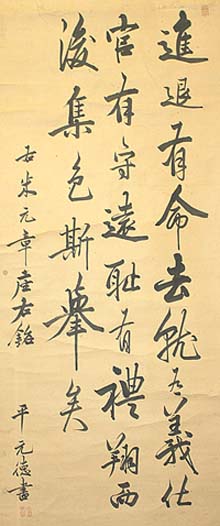 進退有命去就有義仕
官有守遠耻有禮翔而
後集色斯擧矣
右米元章座右銘
平元德書